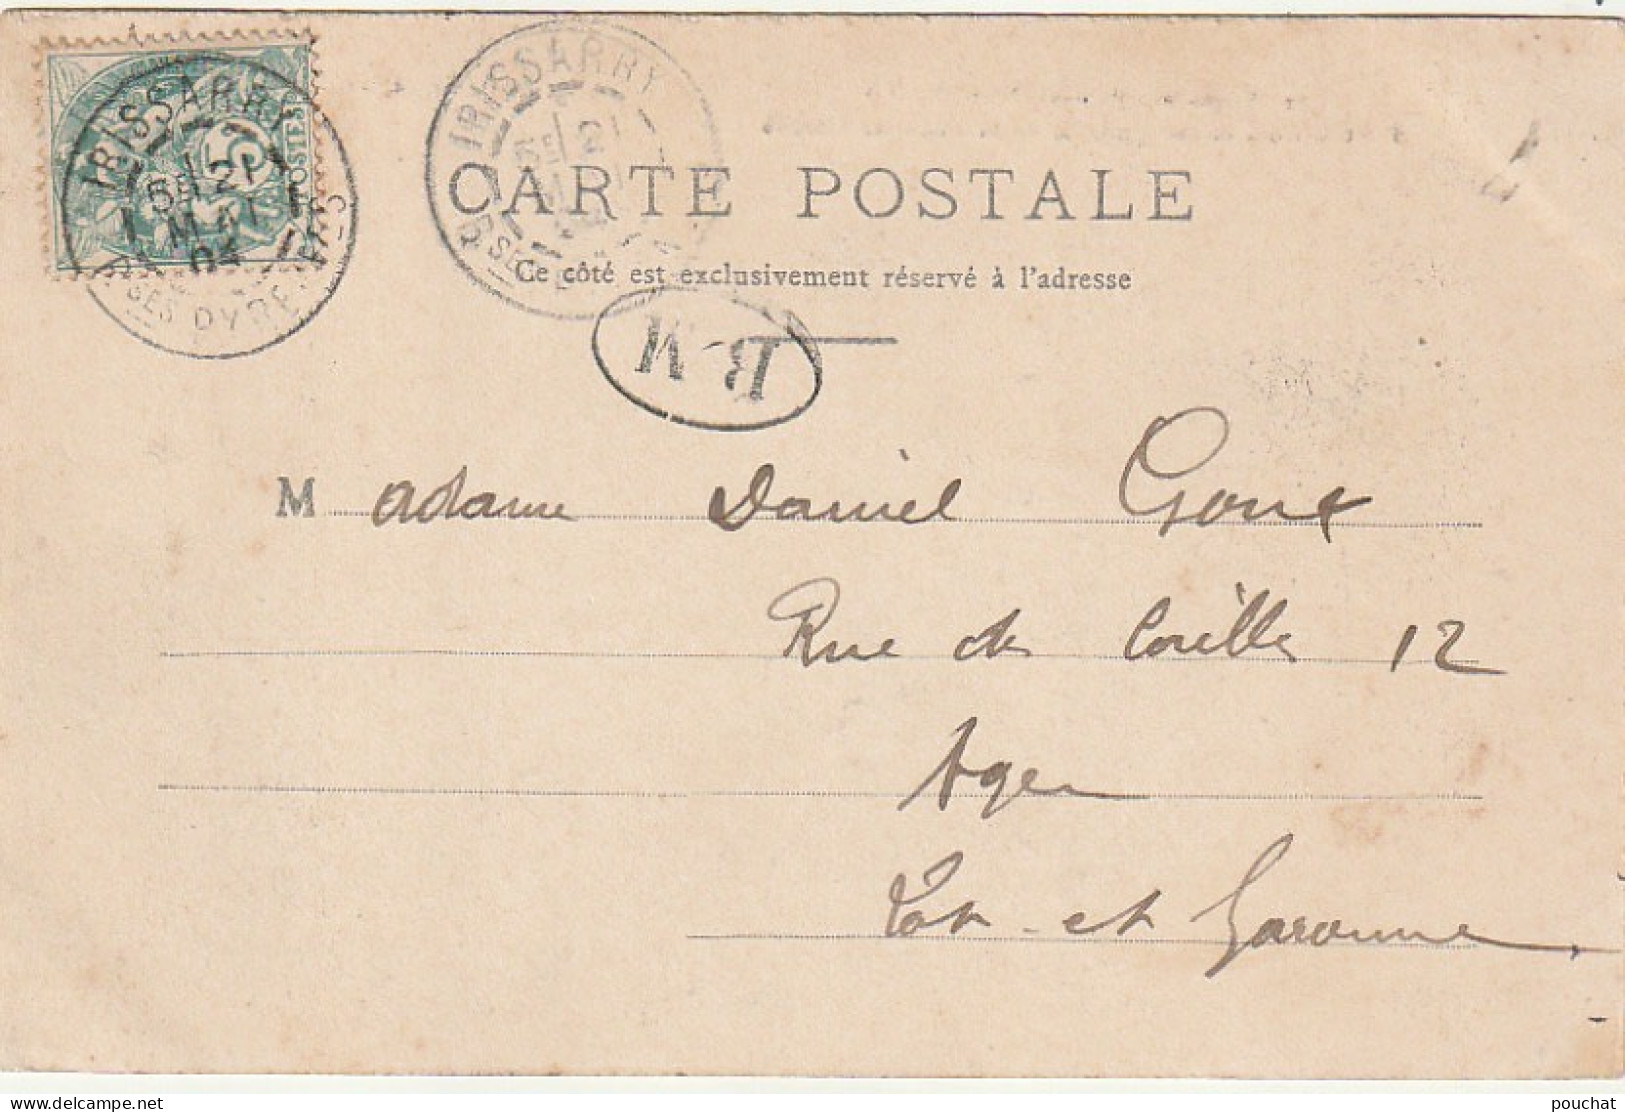 IRISSARRY
5E 21
MAI
04
BSES PYRENEES
5
POSTES
IRISSARRY
CARTE POSTALE
Ce côté est exclusivement réservé à l'adresse
B.M
Madame Daniel Goux
Rue de 12
Agen
Lot-et-Garonne
delcampe.net
pouchat